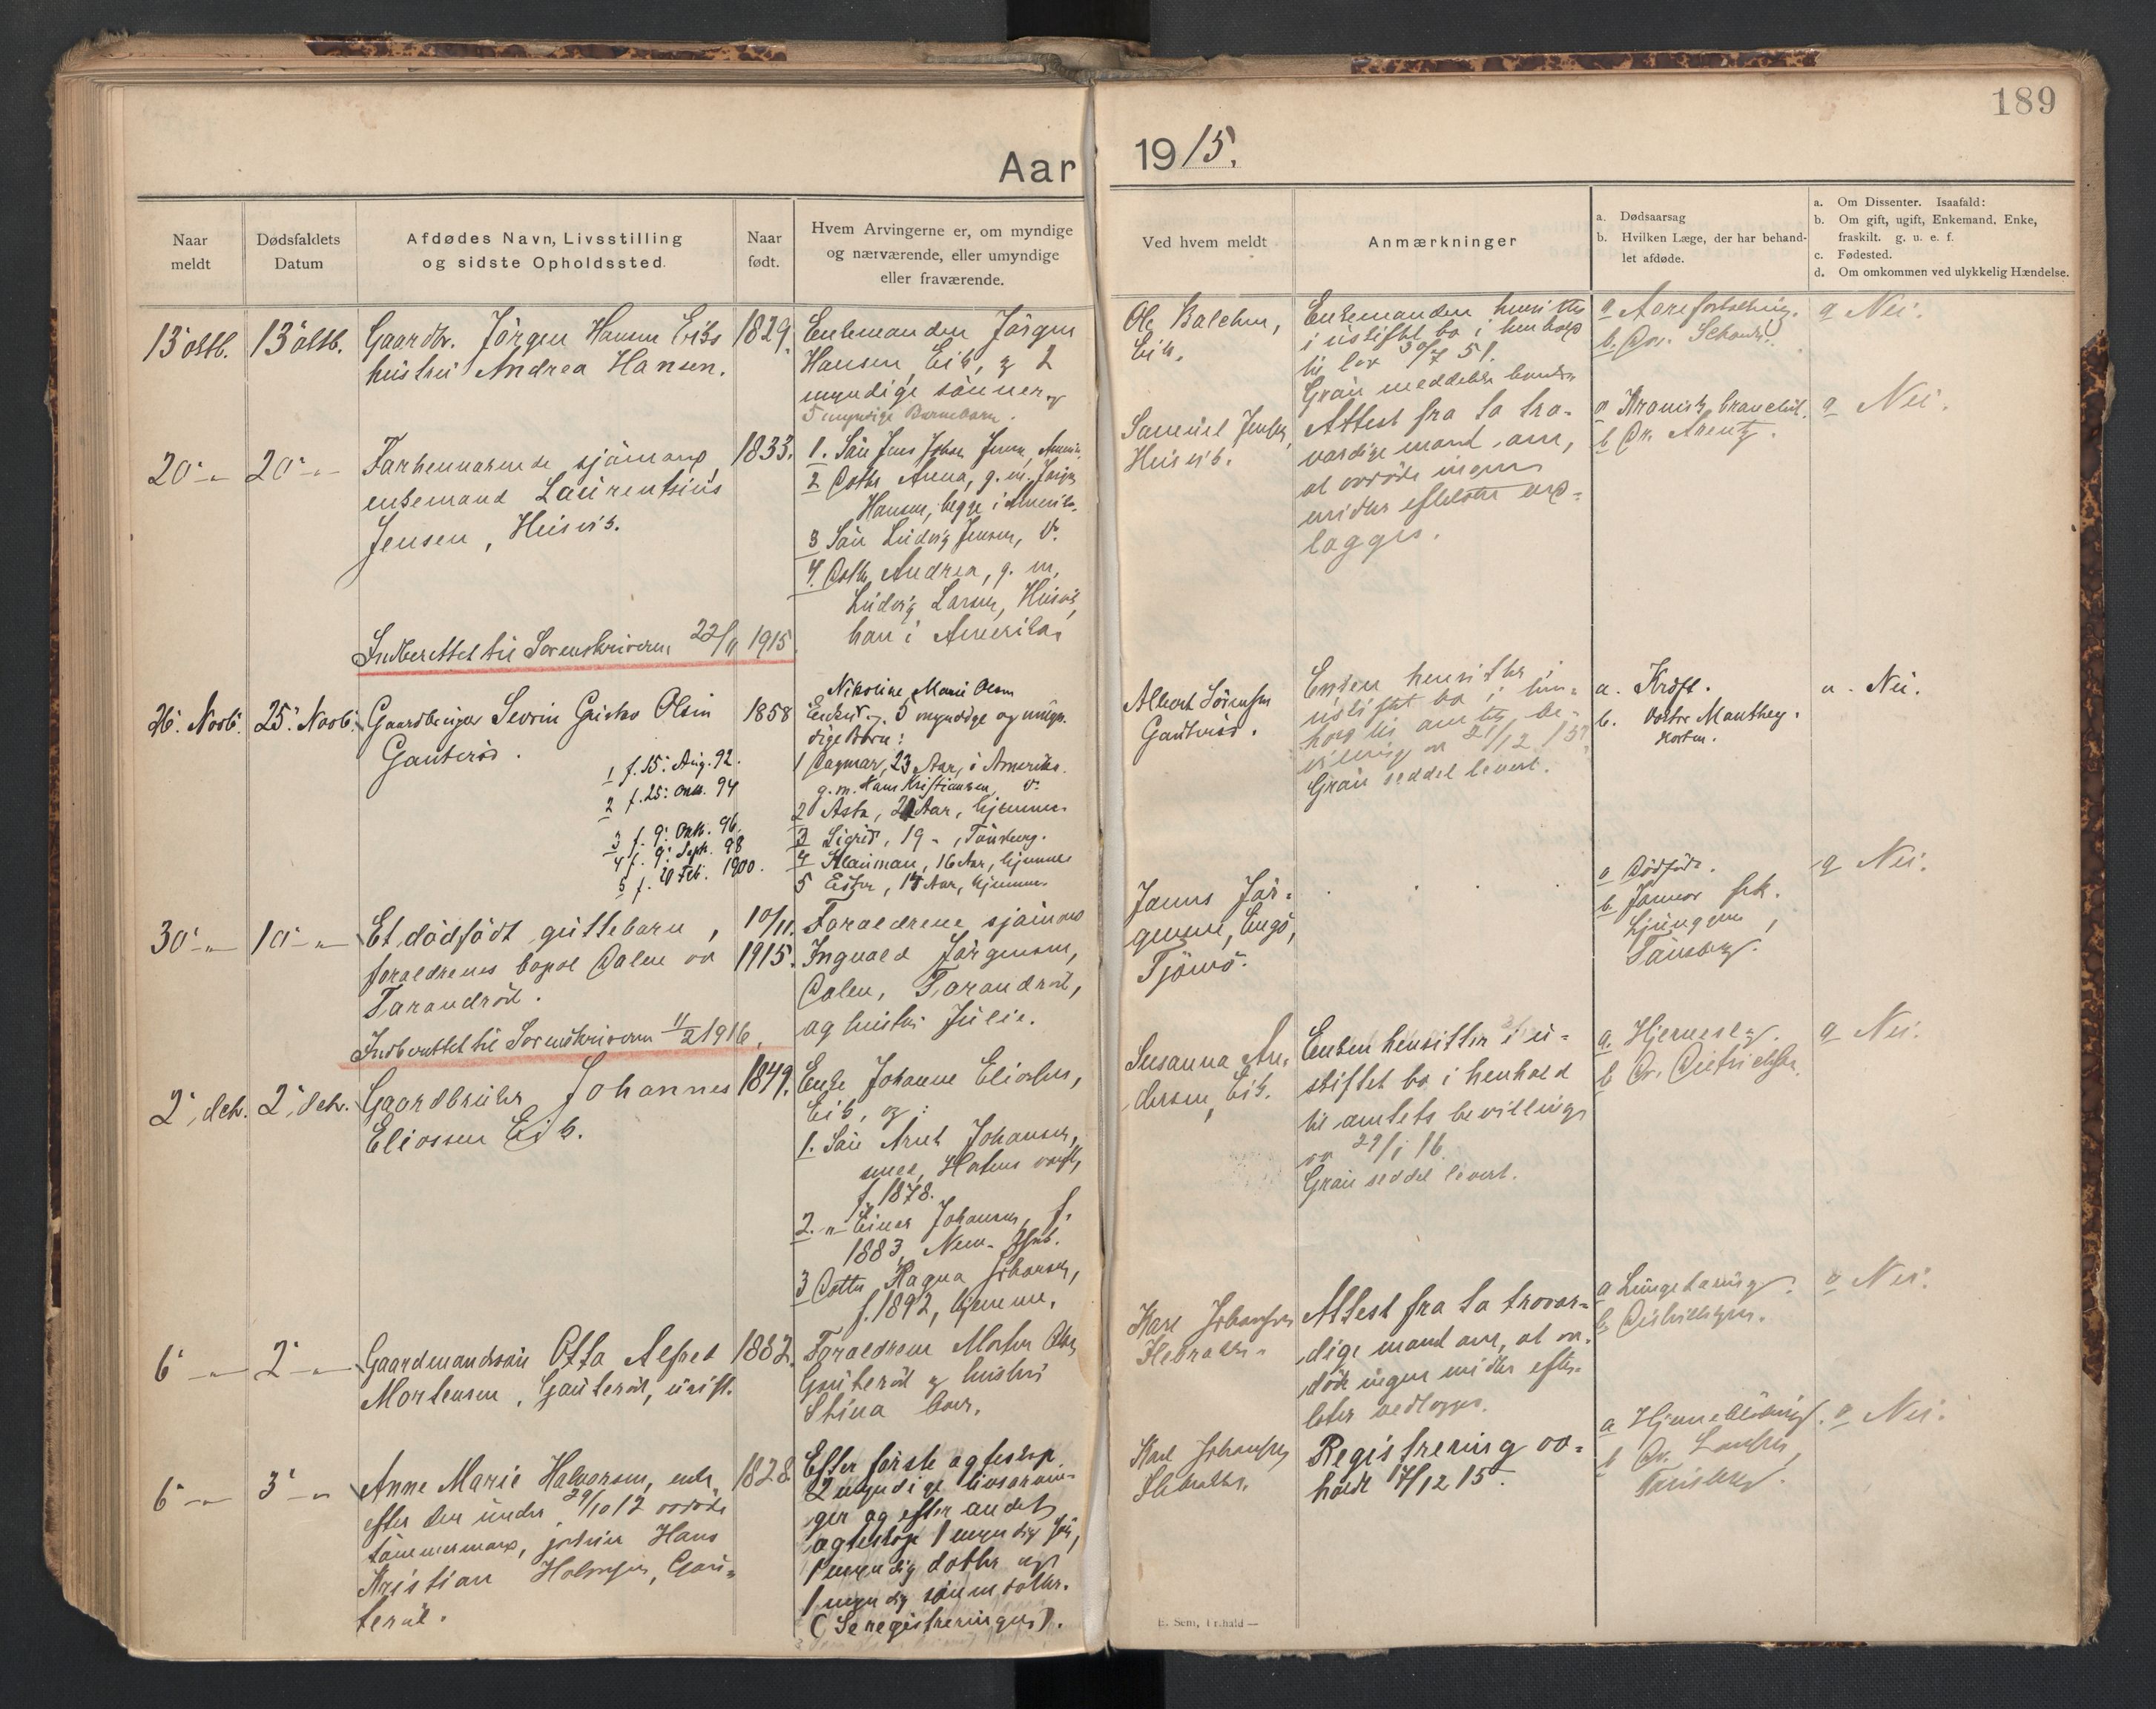 189
Aar 1915.
Naar meldt
Dødsfaldets Datum
Afdødes Navn, Livsstilling og sidste Opholdssted.
Naar født.
Hvem Arvingerne er, om myndige og nærværende, eller umyndige eller fraværende.
Ved hvem meldt
Anmærkninger
a. Dødsaarsag
b. Hvilken Læge, der har behandlet afdøde.
a. Om Dissenter. Isaafald:
b. Om gift, ugift, Enkemand, Enke, fraskilt. g. u. e. f.
c. Fødested.
d. Om omkommen ved ulykkelig Hændelse.
13' oktb.
13' oktb.
Gaardbr. Jörgen Hansen Eiks
hustru Andrea Hansen.
1829.
Enkemanden Jörgen
Hansen, Eik, og 2
myndige sönner og
5 myndige Barnebarn.
Ole
Eik.
Enkemanden
i uskiftet bo i henhold
til lov 30/7 51.
Graa meddelelse
a
b. Dr.
a Nei.
20' - " -
20' - " -
Forhenværende sjömand,
enkemand Laurentsius
Jensen, Husvik.
1833.
1. Sön Jens Johan Jensen, Amerika
2 Dotter Anna, g. m. Jörgen
Hansen, begge i Amerika.
3 Sön Ludvig Jensen, do.
4. Dotter Andrea, g. m.
Ludvig Larsen, Husvik,
han i Amerika
Samuel Jensen,
Husvik.
Attest fra to tro-
værdige mænd om,
at avdöde ingen
midler efterlot ved-
lægges.
a Kronisk bronchit.
b Dr. Arentz.
a Nei.
Indberettet til Sorenskriveren 22/11 1915.
26' Novb.
25' Novb.
Gaardbruger Sevrin Gustav Olsen
Gauteröd.
1 f. 15' Aug. 92.
2 f. 25' 94
3 f. 9' Oktb. 96.
4 f. 9' Septb. 98
5 f. 20 Feb. 1900.
1858
Nikoline Marie Olsen
Enke og 5 myndige og umyn-
dige Børn:
1 Dagmar, 23 Aar, i Amerika.
g. m. Hans Kristiansen, do.
2 Asta, 21 Aar, hjemme.
3 Sigrid, 19 - , Tönsberg.
4 16 Aar, hjemme
5 Ester, 15 Aar, hjemme.
Albert Sörensen
Gauteröd.
Enken hensitter i
uskiftet bo i hen-
hold til amtets be-
villing av 21/12 15.
Graa seddel levert.
a. Kræft.
b. Doktor Manthey.
Horten.
a. Nei.
30' - " -
10' - " -
Et dödfödt guttebarn,
foraldrenes bopæl Dalen av
Tarandröd.
10/11.
1915.
Foraldrene sjömand
Ingvald Jörgensen,
Dalen, Tarandröd,
og hustru Julie.
Janus Jör-
gensen, Engö,
Tjömö.
a Dödfödt.
b. Jormor frk.
Ljunggren,
Tönsberg.
a Nei.
Indberettet til Sorenskriveren 11/2 1916.
2' decb.
2' decb.
Gaardbruker Johannes
Eliassen Eik.
1849.
Enke Johanne Eliassen,
Eik, og:
1. Sön Arnt Johansen,
Hortens værft,
f. 1878.
2. - " - Einar Johansen, f.
1883, New-York.
3 Dotter Ragna Johansen,
f. 1892, hjemme.
Susanna An-
dersen, Eik.
Enken hensitter i u-
skiftet bo i henhold
til amtets bevilling
av 29/1 16.
Graa seddel levert.
a.
b Dr. Dietrichson.
a Nei.
6' - " -
2' - " -
Gaardmandssön Otto Alfred
Mortensen, Gauteröd, ugift.
1882.
Foraldrene Morten Olsen
Gauteröd og hustru
Stina
Karl Johansen
Attest fra to trovær-
dige mænd om, at av-
döde ingen midler efter-
loter vedlægges.
a Lungetæring.
b Dietrichson.
a Nei.
6' - " -
3' - " -
Anne Marie Halvorsen, enke
efter den under 29/10 12 avdöde
tömmermand, Hans
Kristian Halvorsen, Gau-
teröd.
1828.
Efter förste ægteskap
2 myndige livsarvin-
ger og efter andet
ægteskap 1 myndig sön,
1 myndig dotter og
1 myndig sönnedotter.
(Se registreringen).
Karl Johansen
Registrering av-
holdt 17/12 15.
a
b Dr.
Tönsberg.
a Nei.
E. Sem, Fr.hald —